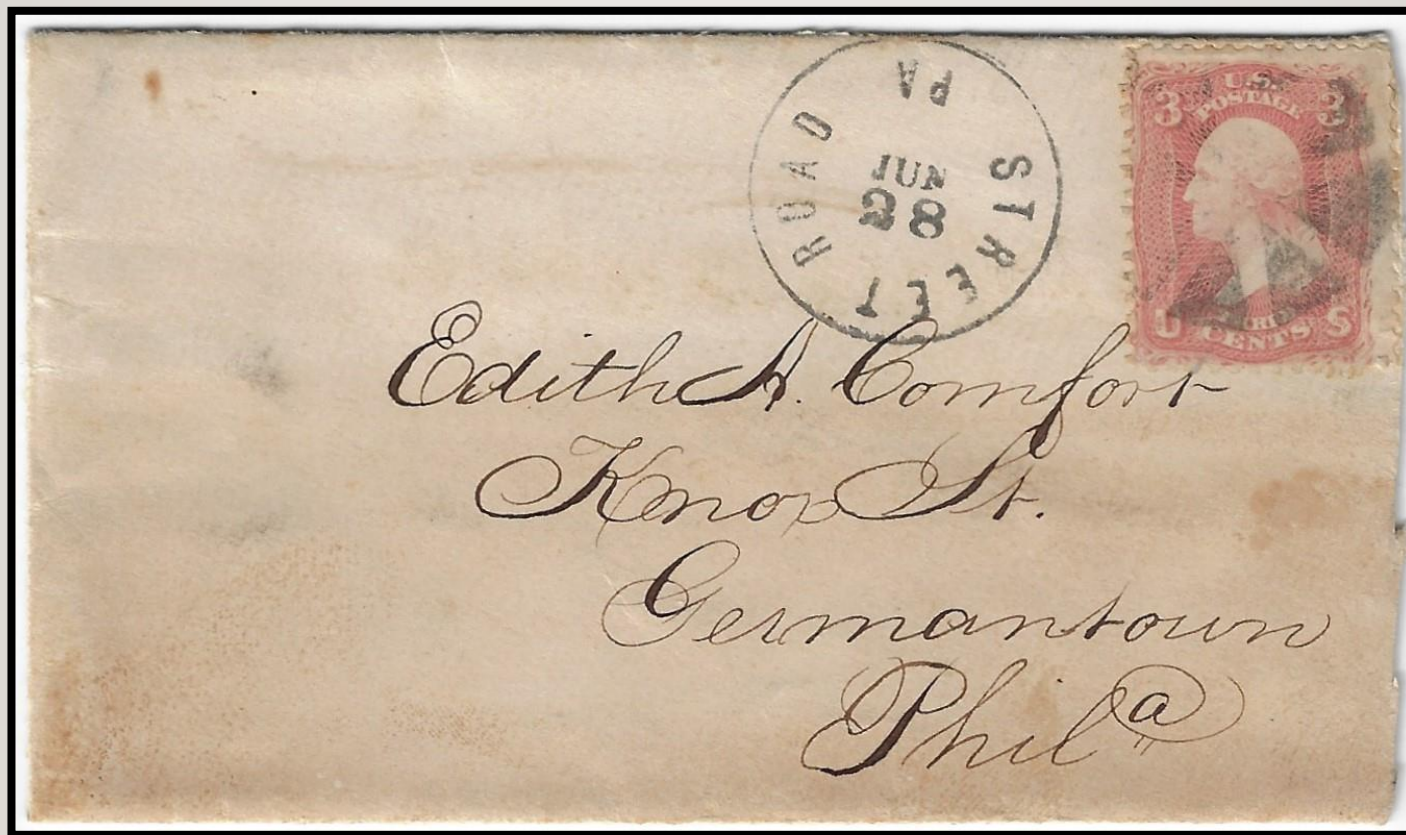 STREET ROAD
PA
JUN
28
3 U.S. 3
POSTAGE
U S
CENTS
Edith A. Comfort
Knox St.
Germantown
Phila